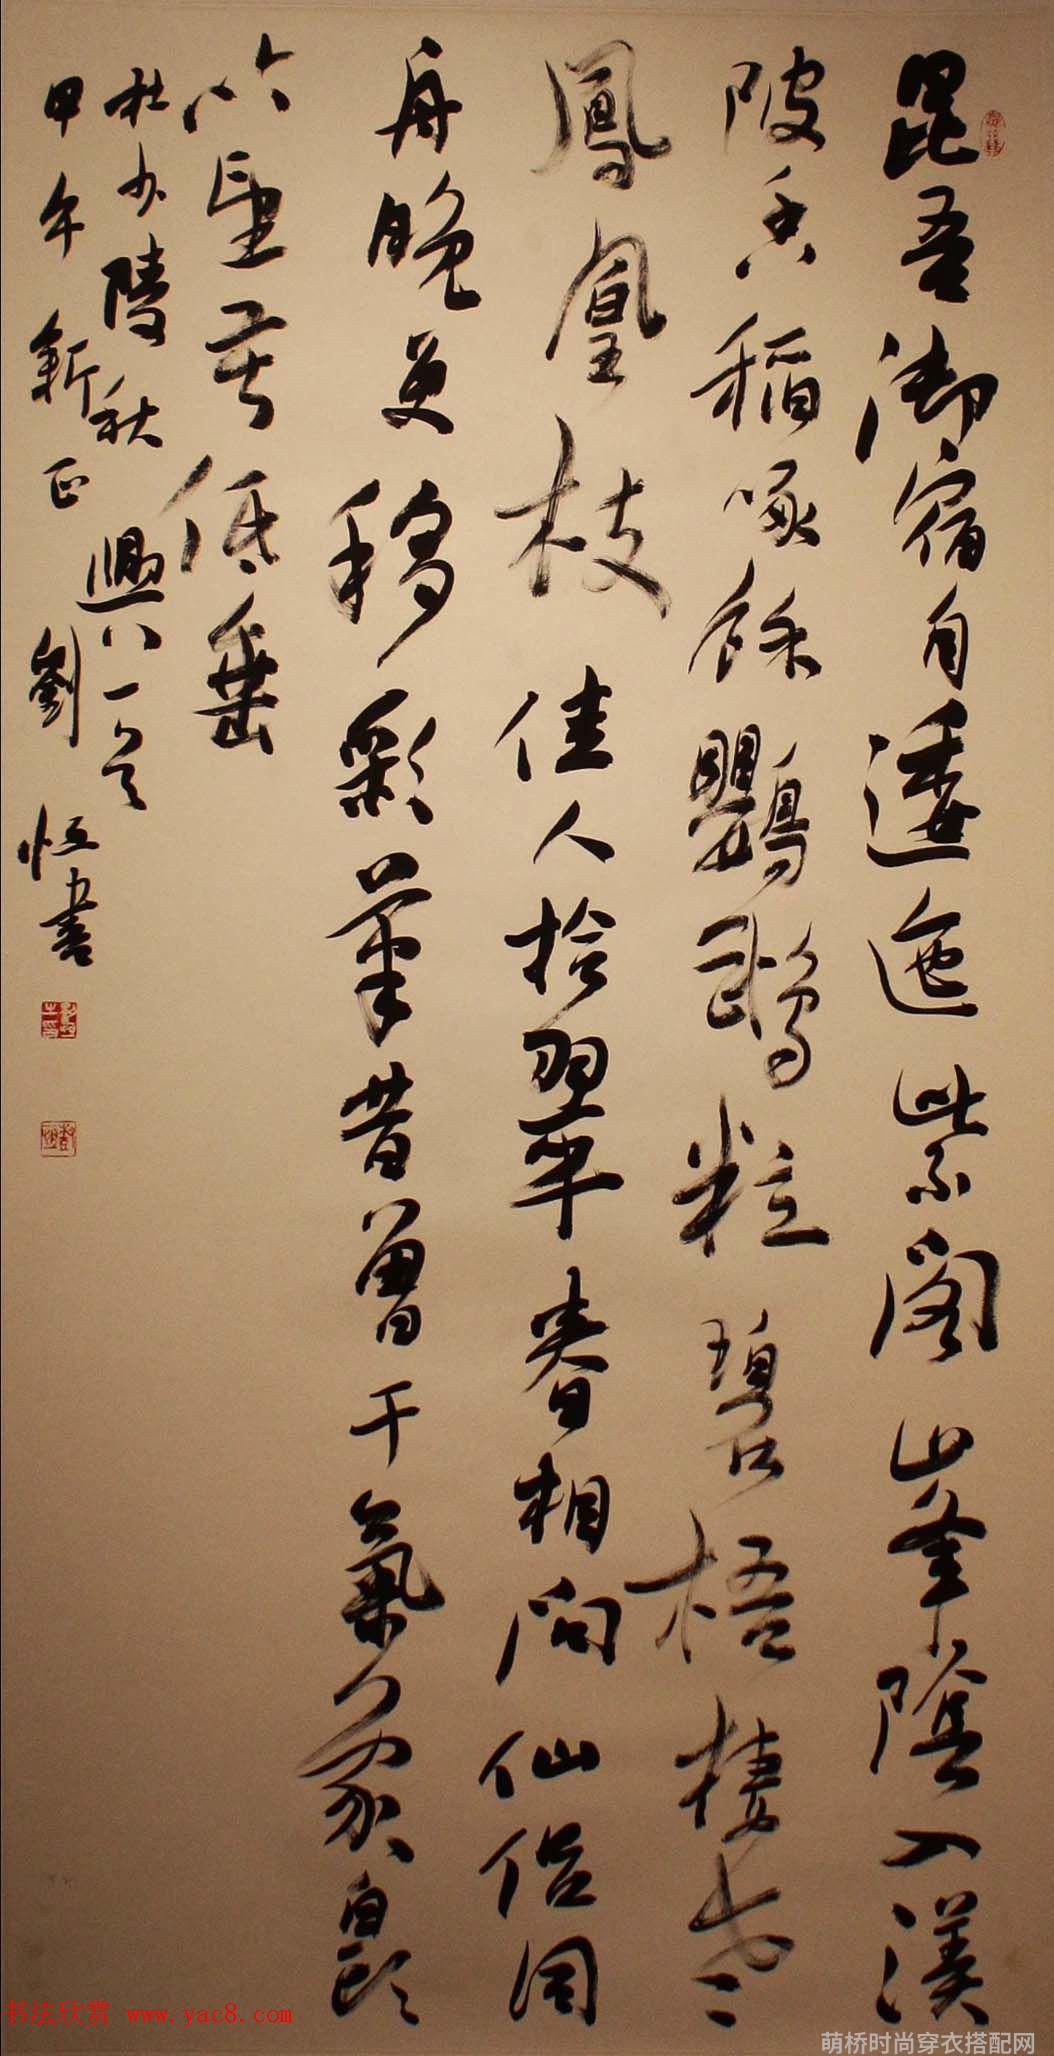 昆吾御宿自逶迤紫閣峯陰入渼
陂香稻啄餘鸚鵡粒碧梧棲老
鳳凰枝佳人拾翠春相問仙侶同
舟晚更移彩筆昔曾干氣象白頭
吟望苦低垂
杜少陵秋興八一首
甲午新正劉恒書
书法欣赏 www.yac8.com
萌桥时尚穿衣搭配网